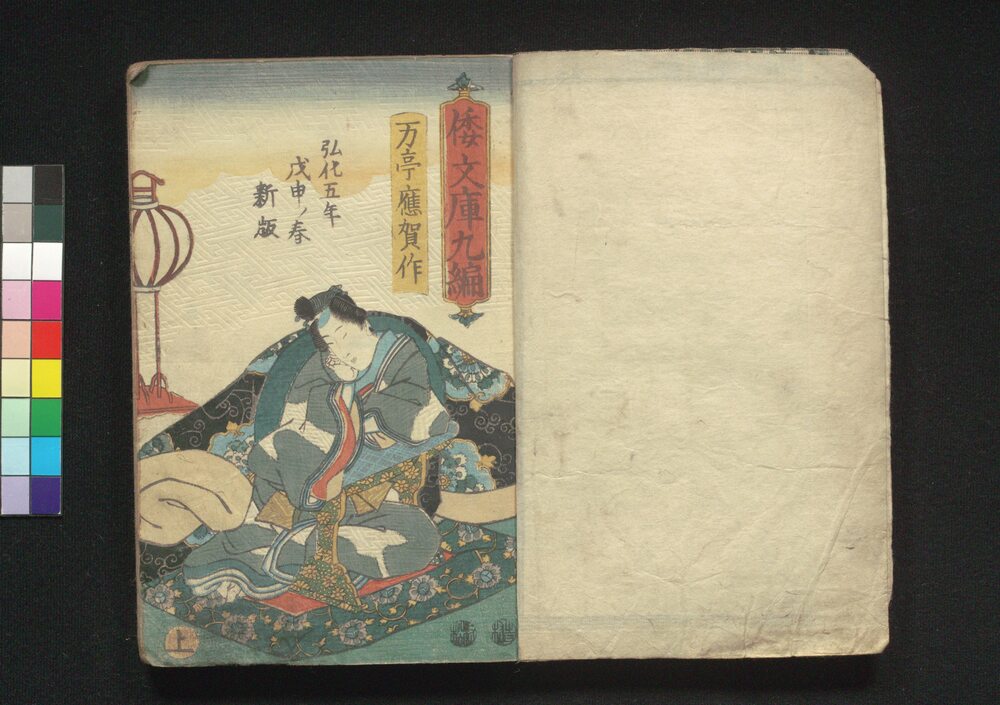 倭文庫九編
万亭應賀作
弘化五年
戊申ノ春
新版
上